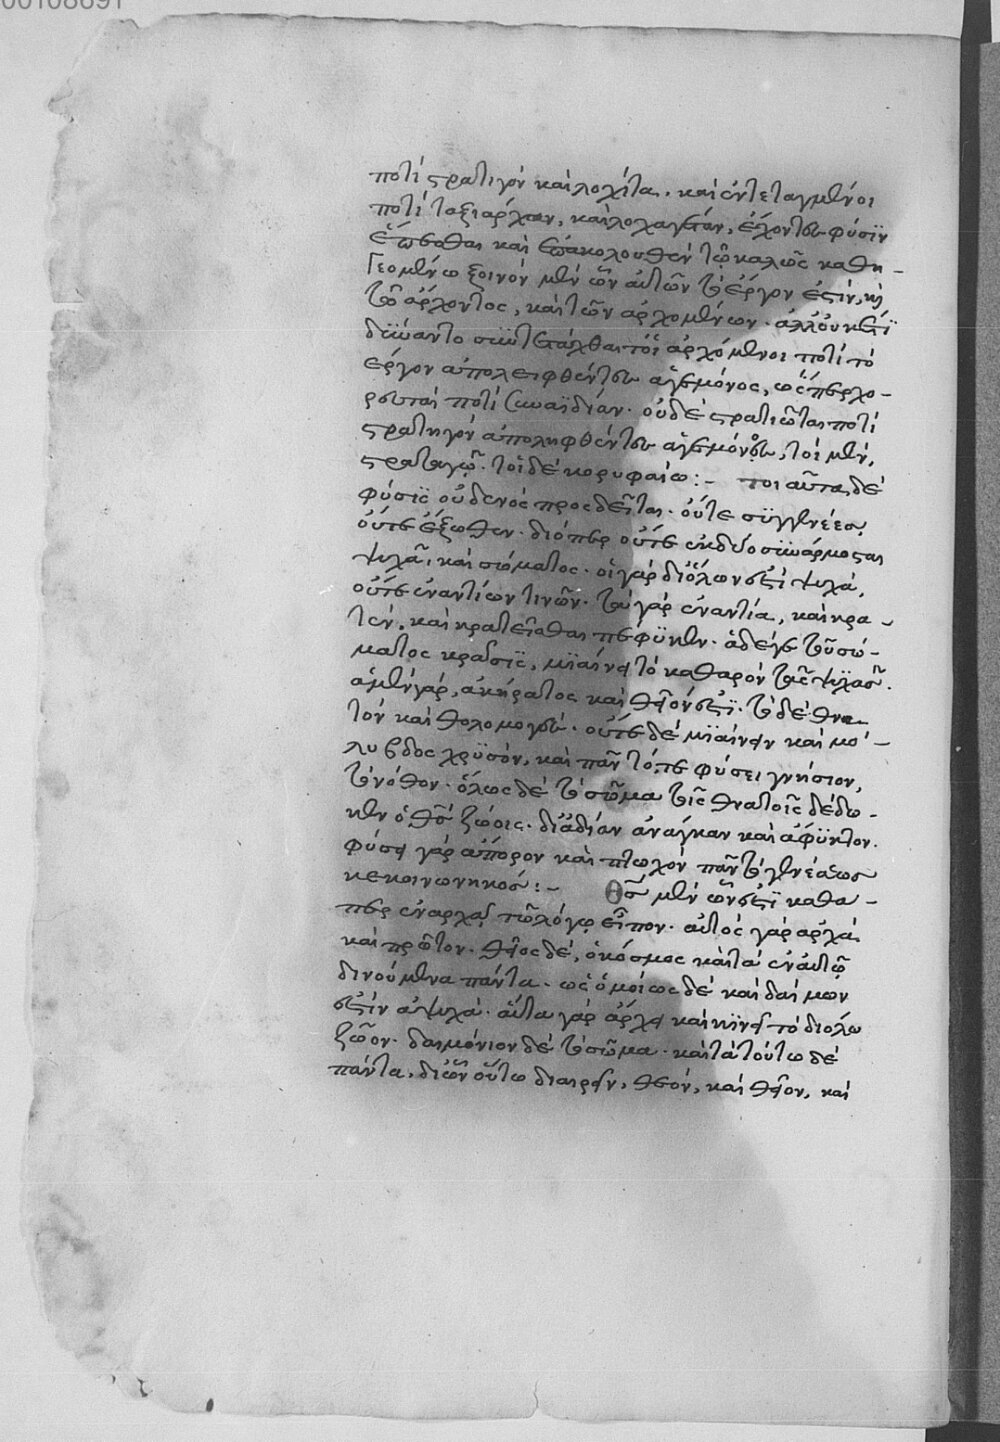 00108691
ποτί στρατιγὸν καὶ λοχίται. καὶ ἐντεταγμένοι
ποτί ταξιάρχαν, καὶ λοχαγέταν, ἔχοντι φύσιν
ἕπεσθαι καὶ ἐπακολουθέν τῷ καλῶς καθη-
γεομένω ξοινὸν μὲν ὦν αὐτῶν τὸ ἔργον ἐστίν, καὶ
τοῦ ἄρχοντος, καὶ τῶν ἀρχομένων. ἀλλ' οὐκ ἔτι
δύναντο συντετάχθαι τοὶ ἀρχόμενοι ποτί τὸ
ἔργον ἀπολειφθέντες ἁγεμόνος, ὥσπερ χο-
ρευταὶ ποτί συναϊδίαν. οὐδὲ στρατιῶται ποτί
στρατηγὸν ἀποληφθέντες ἁγεμόνος, τοὶ μὲν,
στραταγῶ. τοὶ δὲ κορυφαίω :- τοιαῦτα δὲ
φύσις οὐδενὸς προσδεῖται. οὔτε συγγενέες,
οὔτε ἔξωθεν. διόπερ οὔτε ἐκ δύο συνάρμοσται
ψυχᾶ, καὶ σώματος. οἱ γὰρ δι' ὅλων ἐστὶ ψυχά,
οὔτε ἐναντίων τινῶν. τὰ γὰρ ἐναντία, καὶ κρα-
τέν. καὶ κρατεῖσθαι πέφυκεν. ἁ δέ γε τοῦ σώ-
ματος κρᾶσις, μιαίνει τὸ καθαρὸν τᾶς ψυχᾶς.
ἁ μὲν γὰρ, ἀκήρατος καὶ θεῖόν ἐστι. τὸ δὲ θνα
τὸν καὶ θολομογές. οὔτε δὲ μιαίνειν καὶ μό-
λυβδος χρυσὸν, καὶ πᾶν τό, τε φύσει γνήσιον,
τὸ νόθον. ὅλως δὲ τὸ σῶμα τοῖς θνατοῖς δέδω-
κεν ὁ θεὸς ζώοις. δι' ἀϊδίαν ἀνάγκαν καὶ ἄφυκτον.
φύσει γὰρ ἄπορον καὶ πτωχὸν πᾶν τὸ γενέσεως
κεκοινωνηκός :- Θεὸς μὲν ὦν ἐστι καθα-
περ ἐν ἀρχᾷ τῶ λόγω εἶπον. αὐτὸς γὰρ ἀρχά
καὶ πρῶτον. θεῖος δὲ, ὁ κόσμος καὶ τὰ ἐν αὐτῷ
δινούμενα πάντα. ὡς ὁμοίως δὲ καὶ δαίμων
ἐστὶν ἁ ψυχά. αὕτα γὰρ ἄρχει καὶ κινεῖ τὸ διόλω
ζῶον. δαιμόνιον δὲ τὸ σῶμα. καὶ τὰ τούτω δὲ
πάντα, διὼν οὕτω διαιρεῖν, θεόν, καὶ θεῖον, καὶ